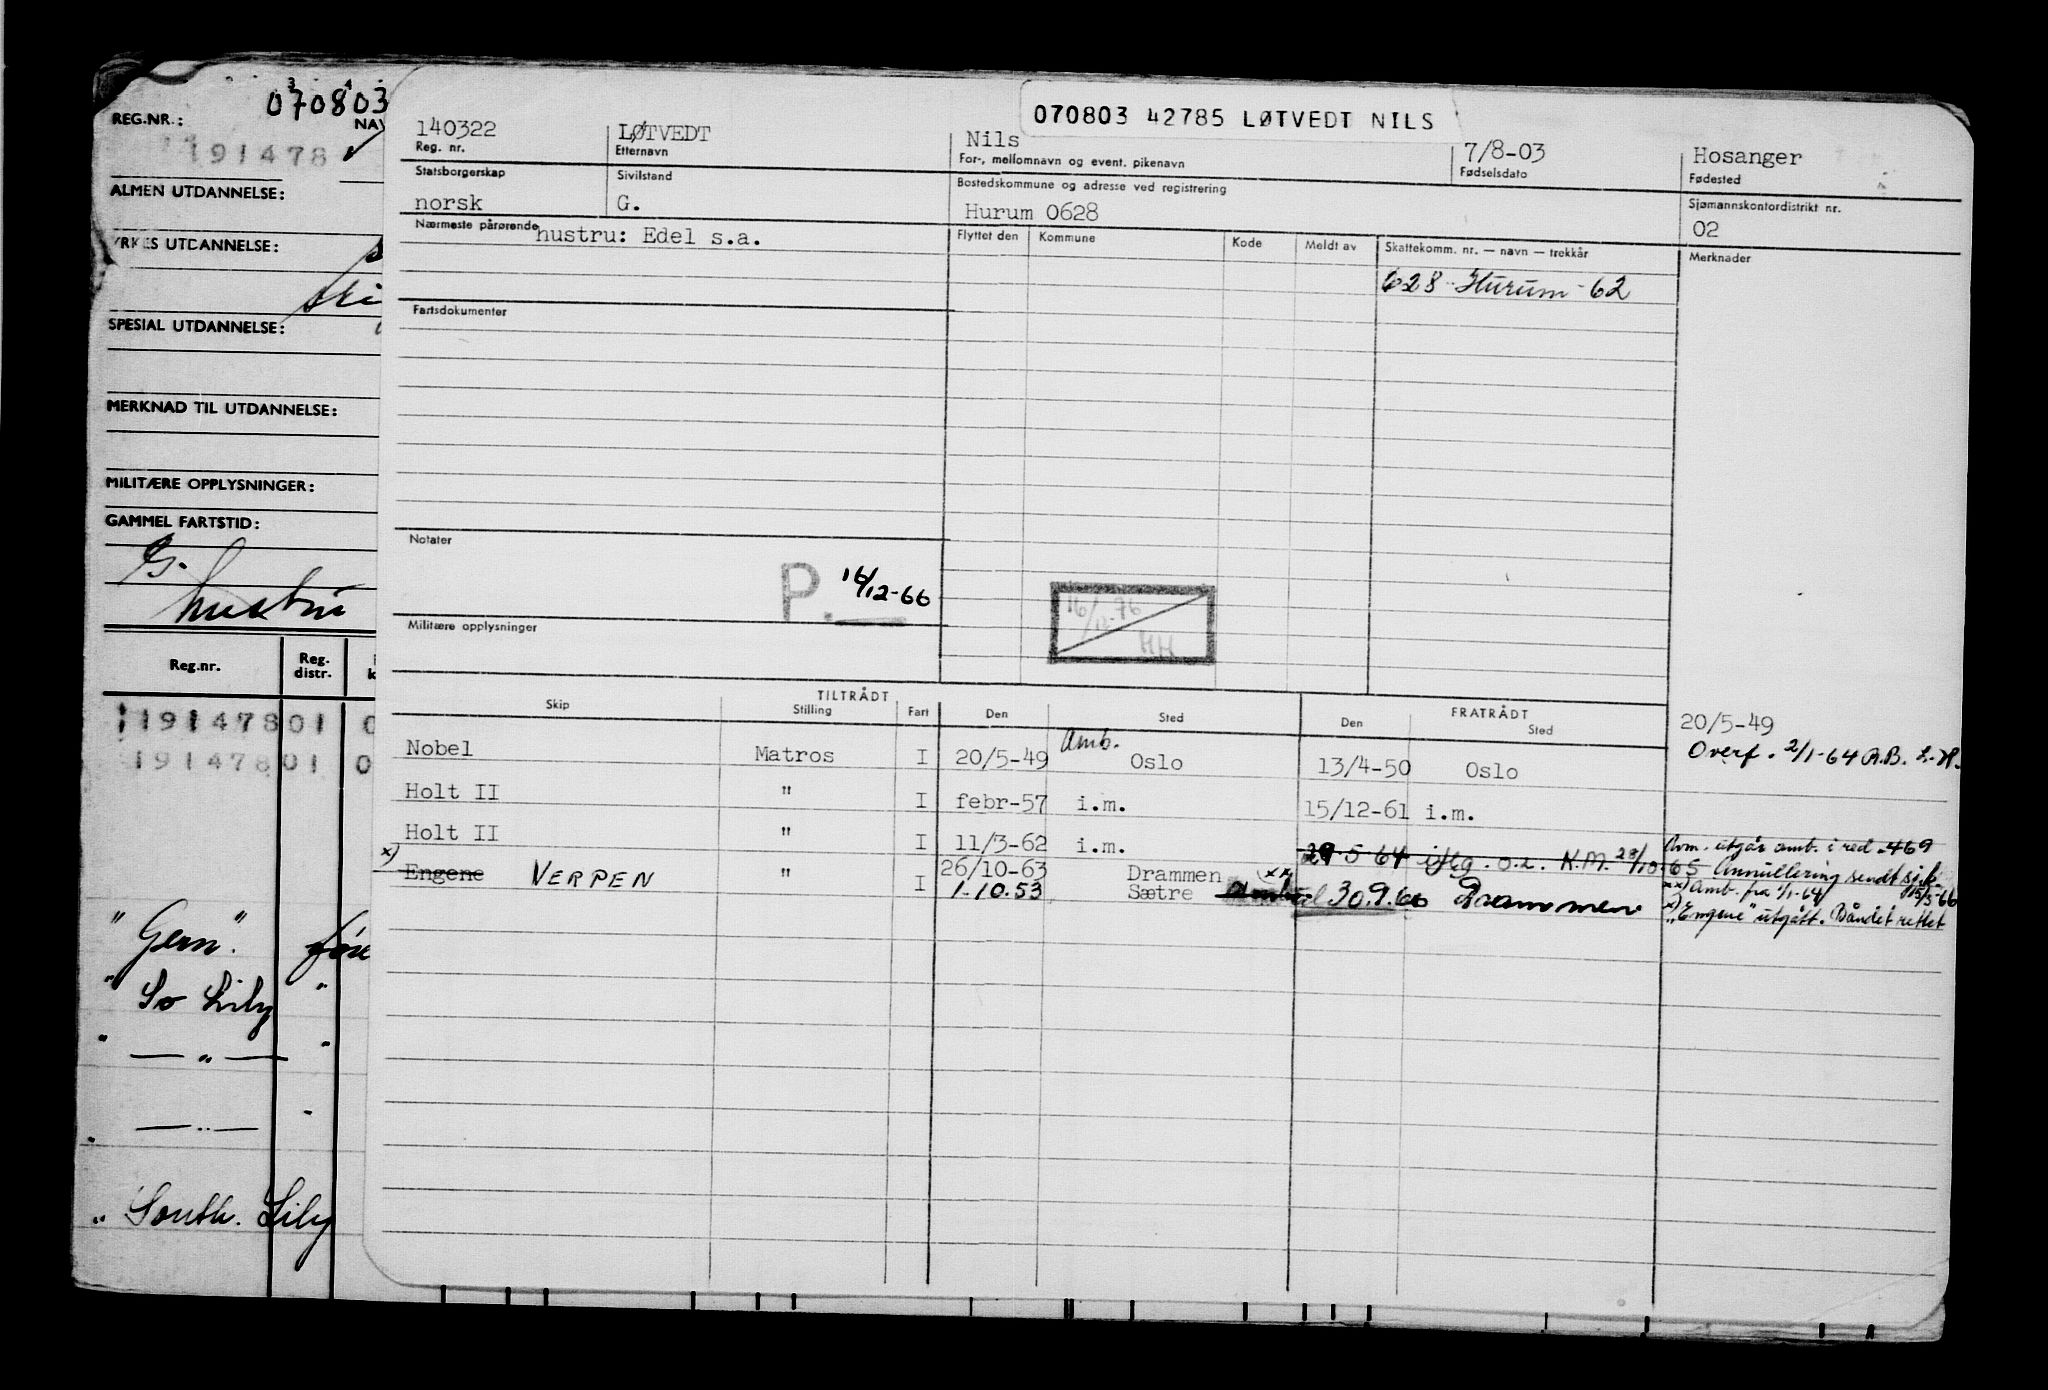 REG.NR.:
070803
NAV
191478
ALMEN UTDANNELSE:
YRKES UTDANNELSE:
SPESIAL UTDANNELSE:
MERKNAD TIL UTDANNELSE:
MILITÆRE OPPLYSNINGER:
GAMMEL FARTSTID:
G.
hustru
Reg.nr.
Reg. distr.
191478 01 0
191478 01 0
" Gern".
" So Lily "
" — " — "
" — " — "
" South. Lily
070803 42785 LØTVEDT NILS
140322 LØTVEDT Nils 7/8-03 Hosanger
Reg. nr. Etternavn For-, mellomnavn og event. pikenavn Fødselsdato Fødested
Statsborgerskap Sivilstand Bostedskommune og adresse ved registrering Sjømannskontordistrikt nr.
norsk G. Hurum 0628 02
Nærmeste pårørende hustru: Edel s.a. Flyttet den Kommune Kode Meldt av Skattekomm. nr. — navn — trekkår Merknader
628 Hurum - 62
Fartsdokumenter
Notater
P. 16/12-66
16/12-76
HH
Militære opplysninger
TILTRÅDT FRATRÅDT
Skip Stilling Fart Den Sted Den Sted
20/5-49
Nobel Matros I 20/5-49 Amb. Oslo 13/4-50 Oslo Overf. 2/1-64 A.B. L.H.
Holt II " I febr-57 i.m. 15/12-61 i.m.
Holt II " I 11/3-62 i.m. Avm. utgår amb. i red. -469
29.5 64 iflg. o.a. K.M. 28/10-65 Annullering sendt s.i.k. 815/5-66
x) Engene VERPEN " I 26/10-63 Drammen xx) xx) Amb. fra 1/1-64
1.10.53 Sætre 30.9.66 Drammen x) "Engene" utgått. Båndet rettet